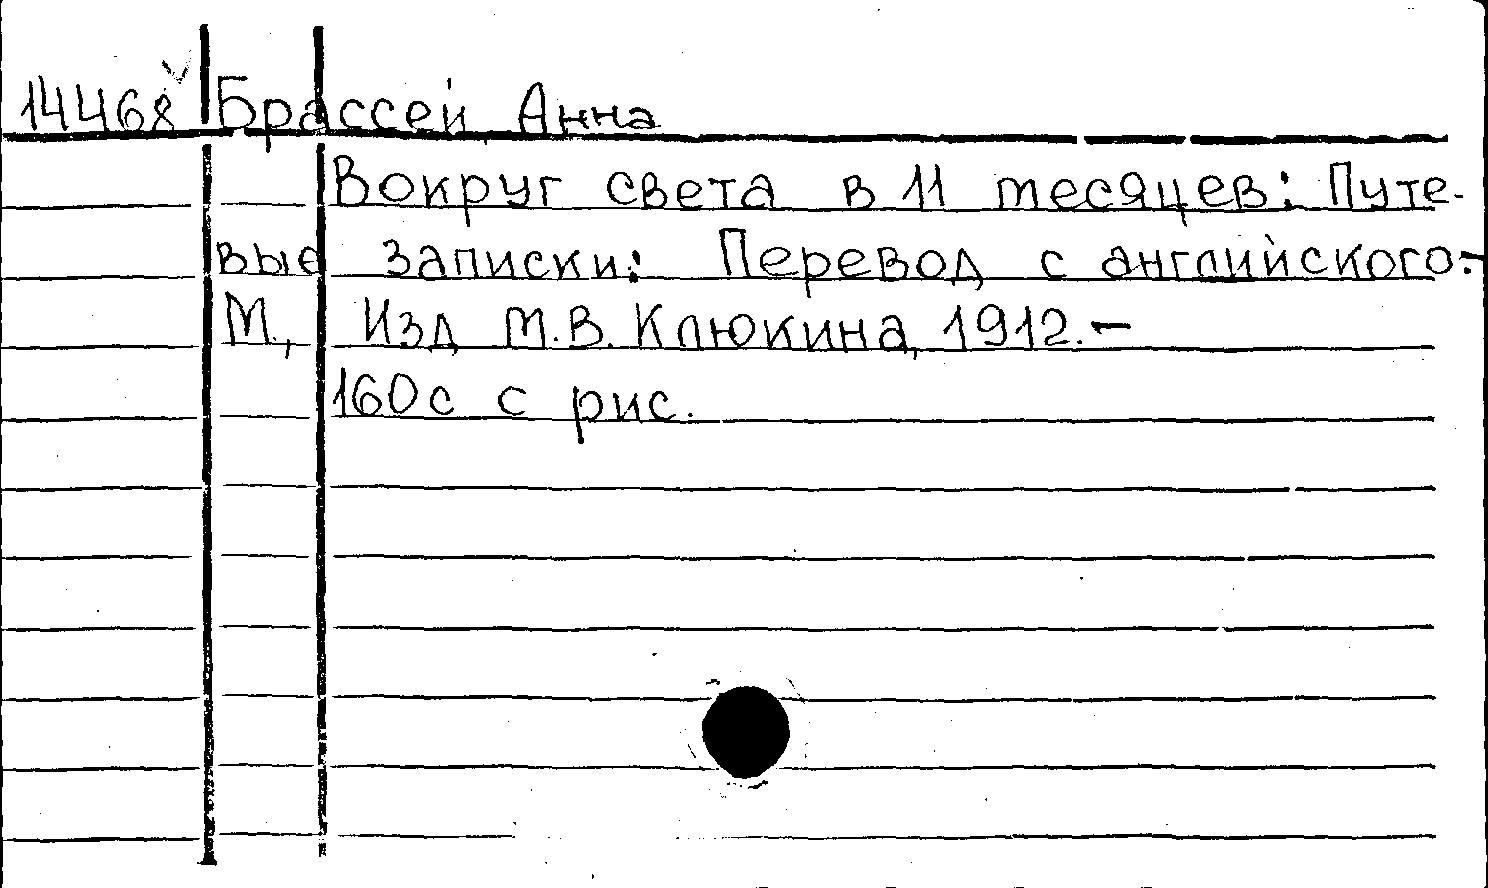 14468 Брассей Анна
Вокруг света в 11 месяцев: Путе-
вые записки: Перевод с английского.-
М., Изд М.В. Клюкина, 1912.-
160с с рис.